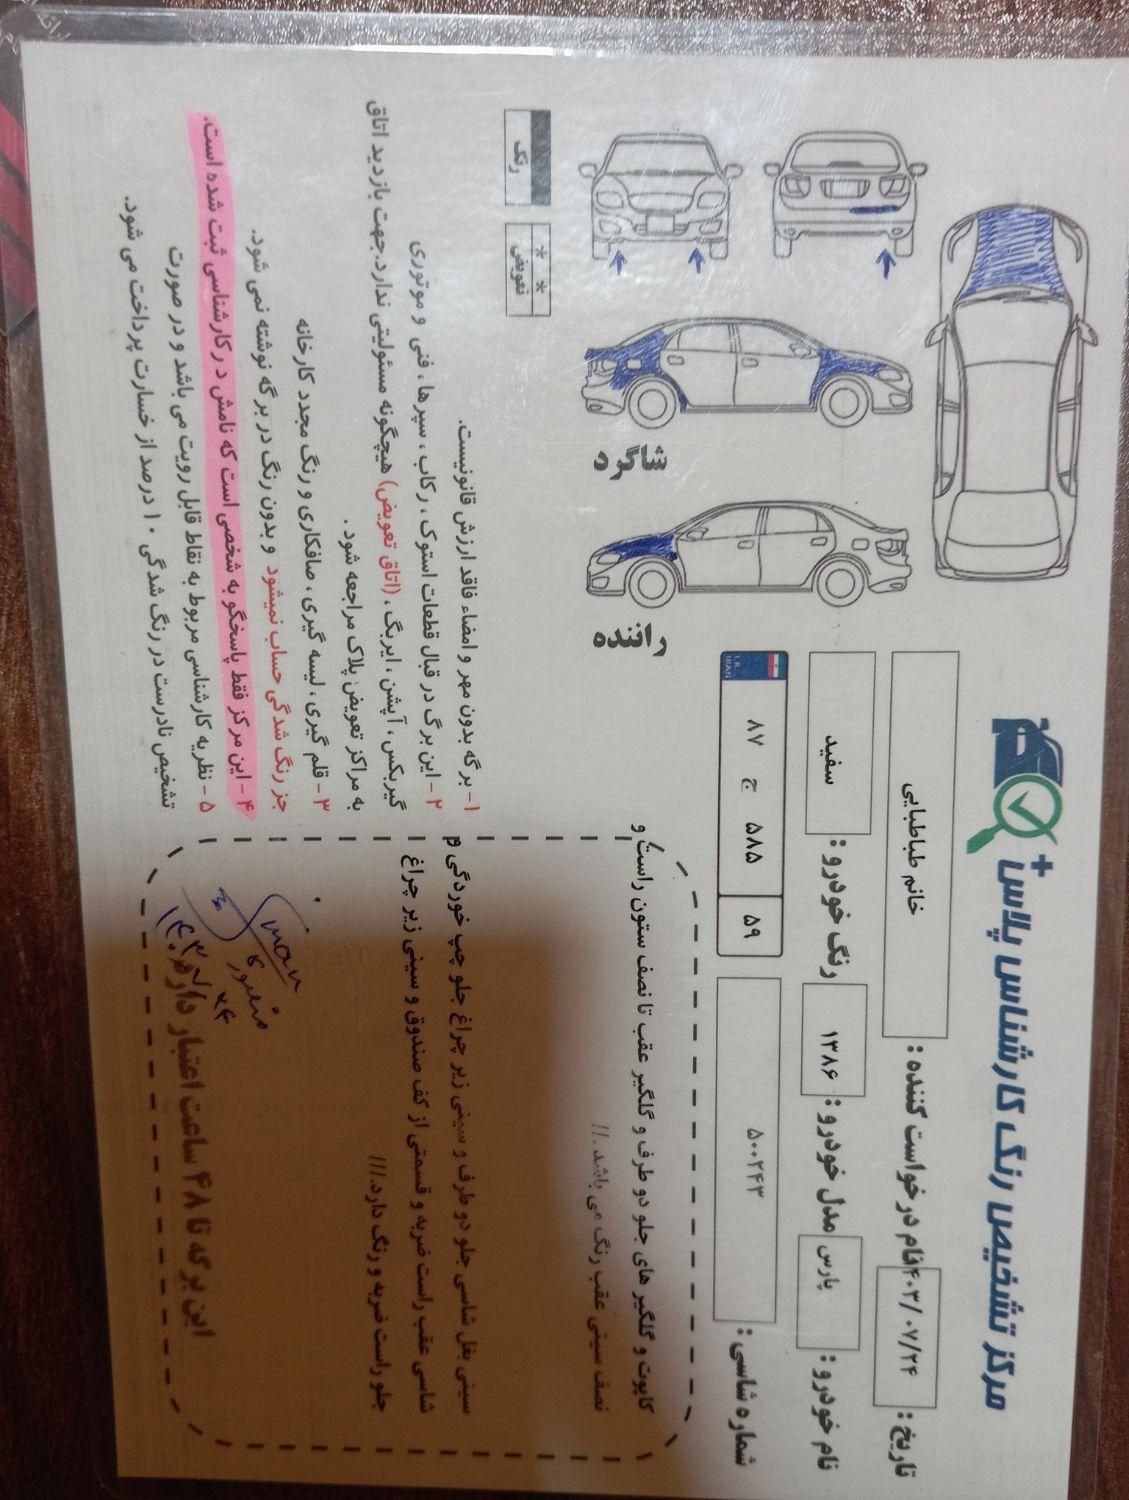 مرکز تشخیص رنگ کارشناس پلاس+
تاریخ: ۱۴۰۳/۰۷/۲۴ نام درخواست کننده: خانم طباطبایی
نام خودرو: پارس مدل خودرو: ۱۳۸۶ رنگ خودرو: سفید
شماره شاسی: ۵۰۰۲۴۳
I.R. IRAN
۸۷ ج ۵۸۵ ۵۹
کاپوت و گلگیر های جلو دو طرف و گلگیر عقب تا نصف ستون راست و
نصف سینی عقب رنگ می باشد.!!
سینی بغل شاسی جلو دو طرف و سینی زیر چراغ جلو چپ خوردگی و
شاسی عقب راست ضربه و قسمتی از کف صندوق و سینی زیر چراغ
جلو راست ضربه و رنگ دارد.!!!
این برگه تا ۴۸ ساعت اعتبار دارد.
راننده
شاگرد
رنگ
* *
تعویض
۱- برگه بدون مهر و امضاء فاقد ارزش قانونیست.
۲- این برگ در قبال قطعات استوک، رکاب، سپرها، فنی و موتوری
گیربکس، آپشن، ایربگ، (اتاق تعویض) هیچگونه مسئولیتی ندارد.جهت بازدید اتاق
به مراکز تعویض پلاک مراجعه شود.
۳- قلم گیری، لیسه گیری، صافکاری و رنگ مجدد کارخانه
جز رنگ شدگی حساب نمیشود و بدون رنگ در برگه نوشته نمی شود.
۴- این مرکز فقط پاسخگو به شخصی است که نامش در کارشناسی ثبت شده است.
۵- نظریه کارشناسی مربوط به نقاط قابل رویت می باشد و در صورت
تشخیص نادرست در رنگ شدگی ۱۰ درصد از خسارت پرداخت می شود.